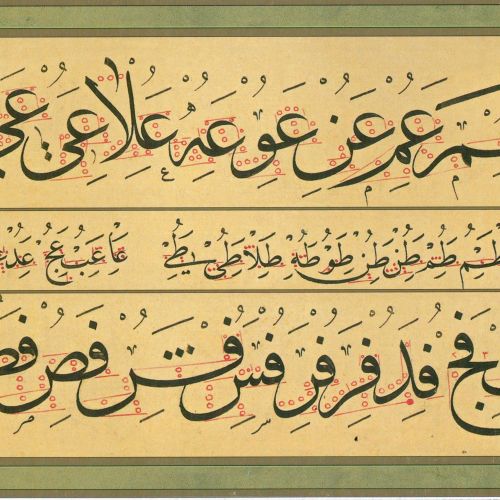 عم عن عو عه علا عي
طم طم طن طن طو طه طلا طي طي عا عب عج عد
فج فد فر فر فس فص